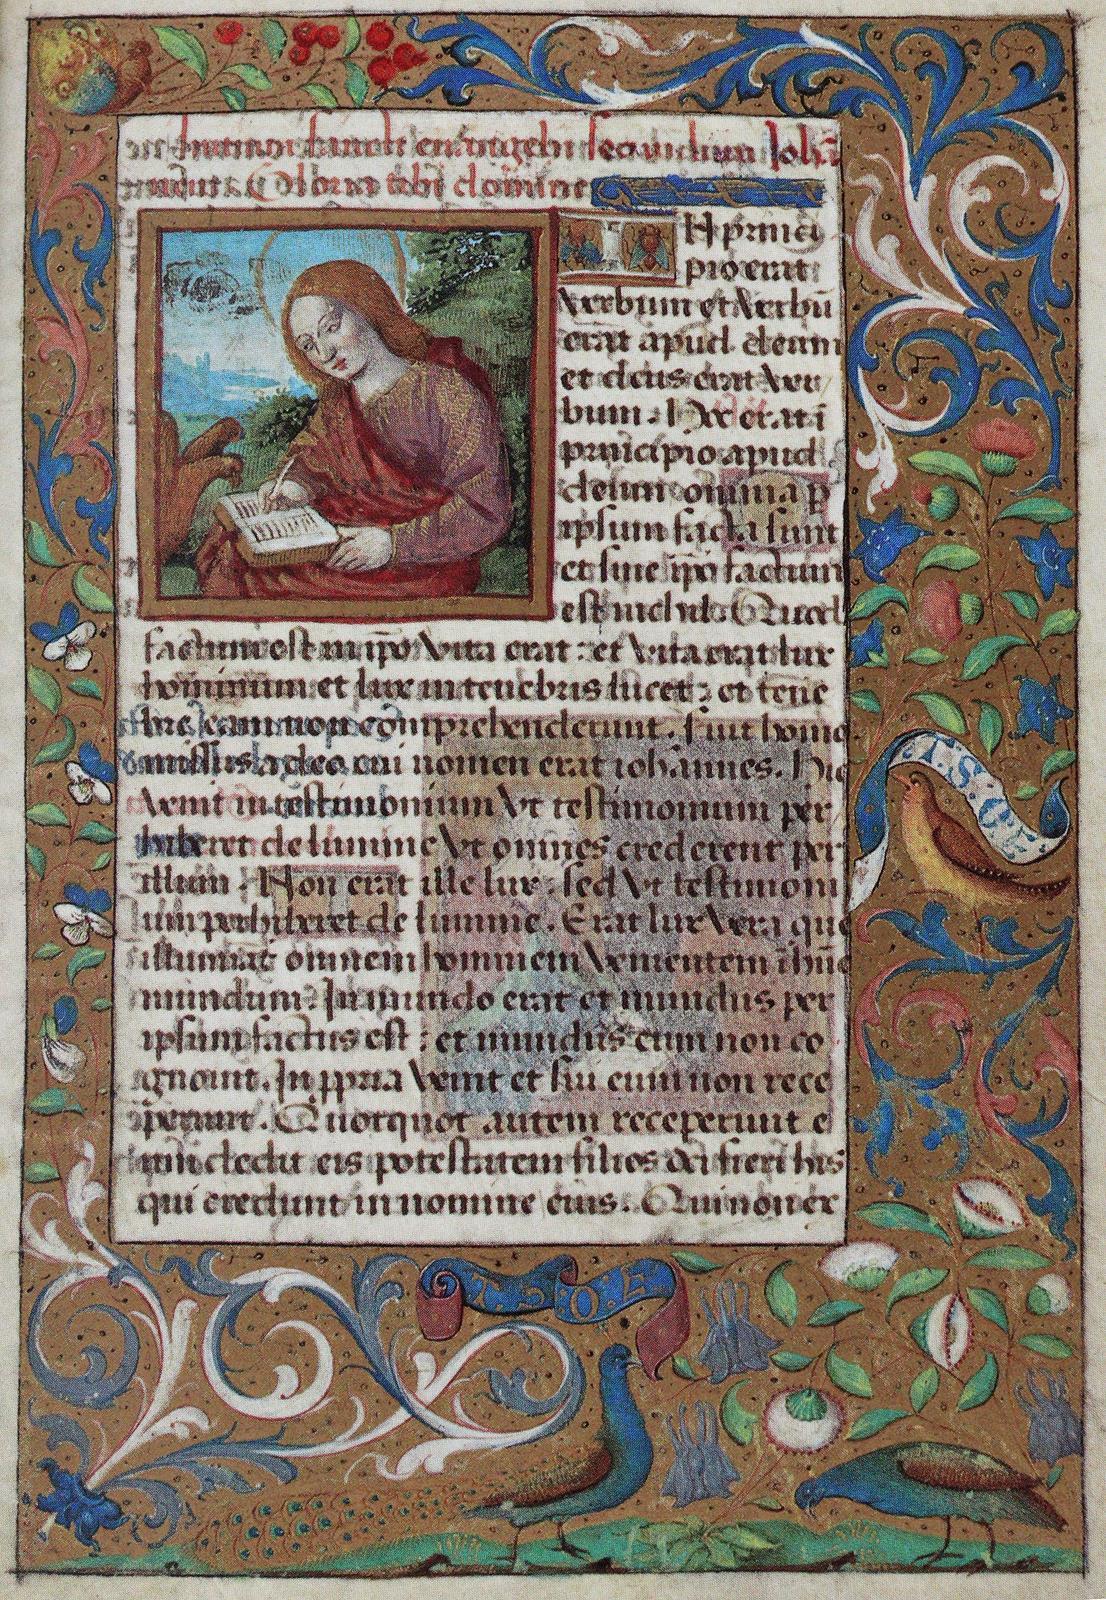 sancti euangelii secundum Joha
Gloria tibi domine
N princi
pio erat
verbum et verbu
erat apud deum
et deus erat ver
bum. Hoc erat i
principio apud
deum omnia p
ipsum facta sunt
et sine ipo factum
est nichil. Quod
factum est in ipo vita erat: et vita erat lux
hominum et lux in tenebris lucet: et tene
bre eam non comprehenderunt. Fuit homo
missus a deo cui nomen erat iohannes. Hic
venit in testimonium vt testimonium per
hiberet de lumine vt omnes crederent per
illum. Non erat ille lux: sed vt testimoni
um perhiberet de lumine. Erat lux vera que
illuminat omnem hominem venientem i hūc
mundum. In mundo erat et mundus per
ipsum factus est: et mundus eum non co
gnouit. In ppria venit et sui eum non rece
perunt. Quotquot autem receperunt e
um dedit eis potestatem filios dei fieri his
qui credunt in nomine eius. Qui non ex